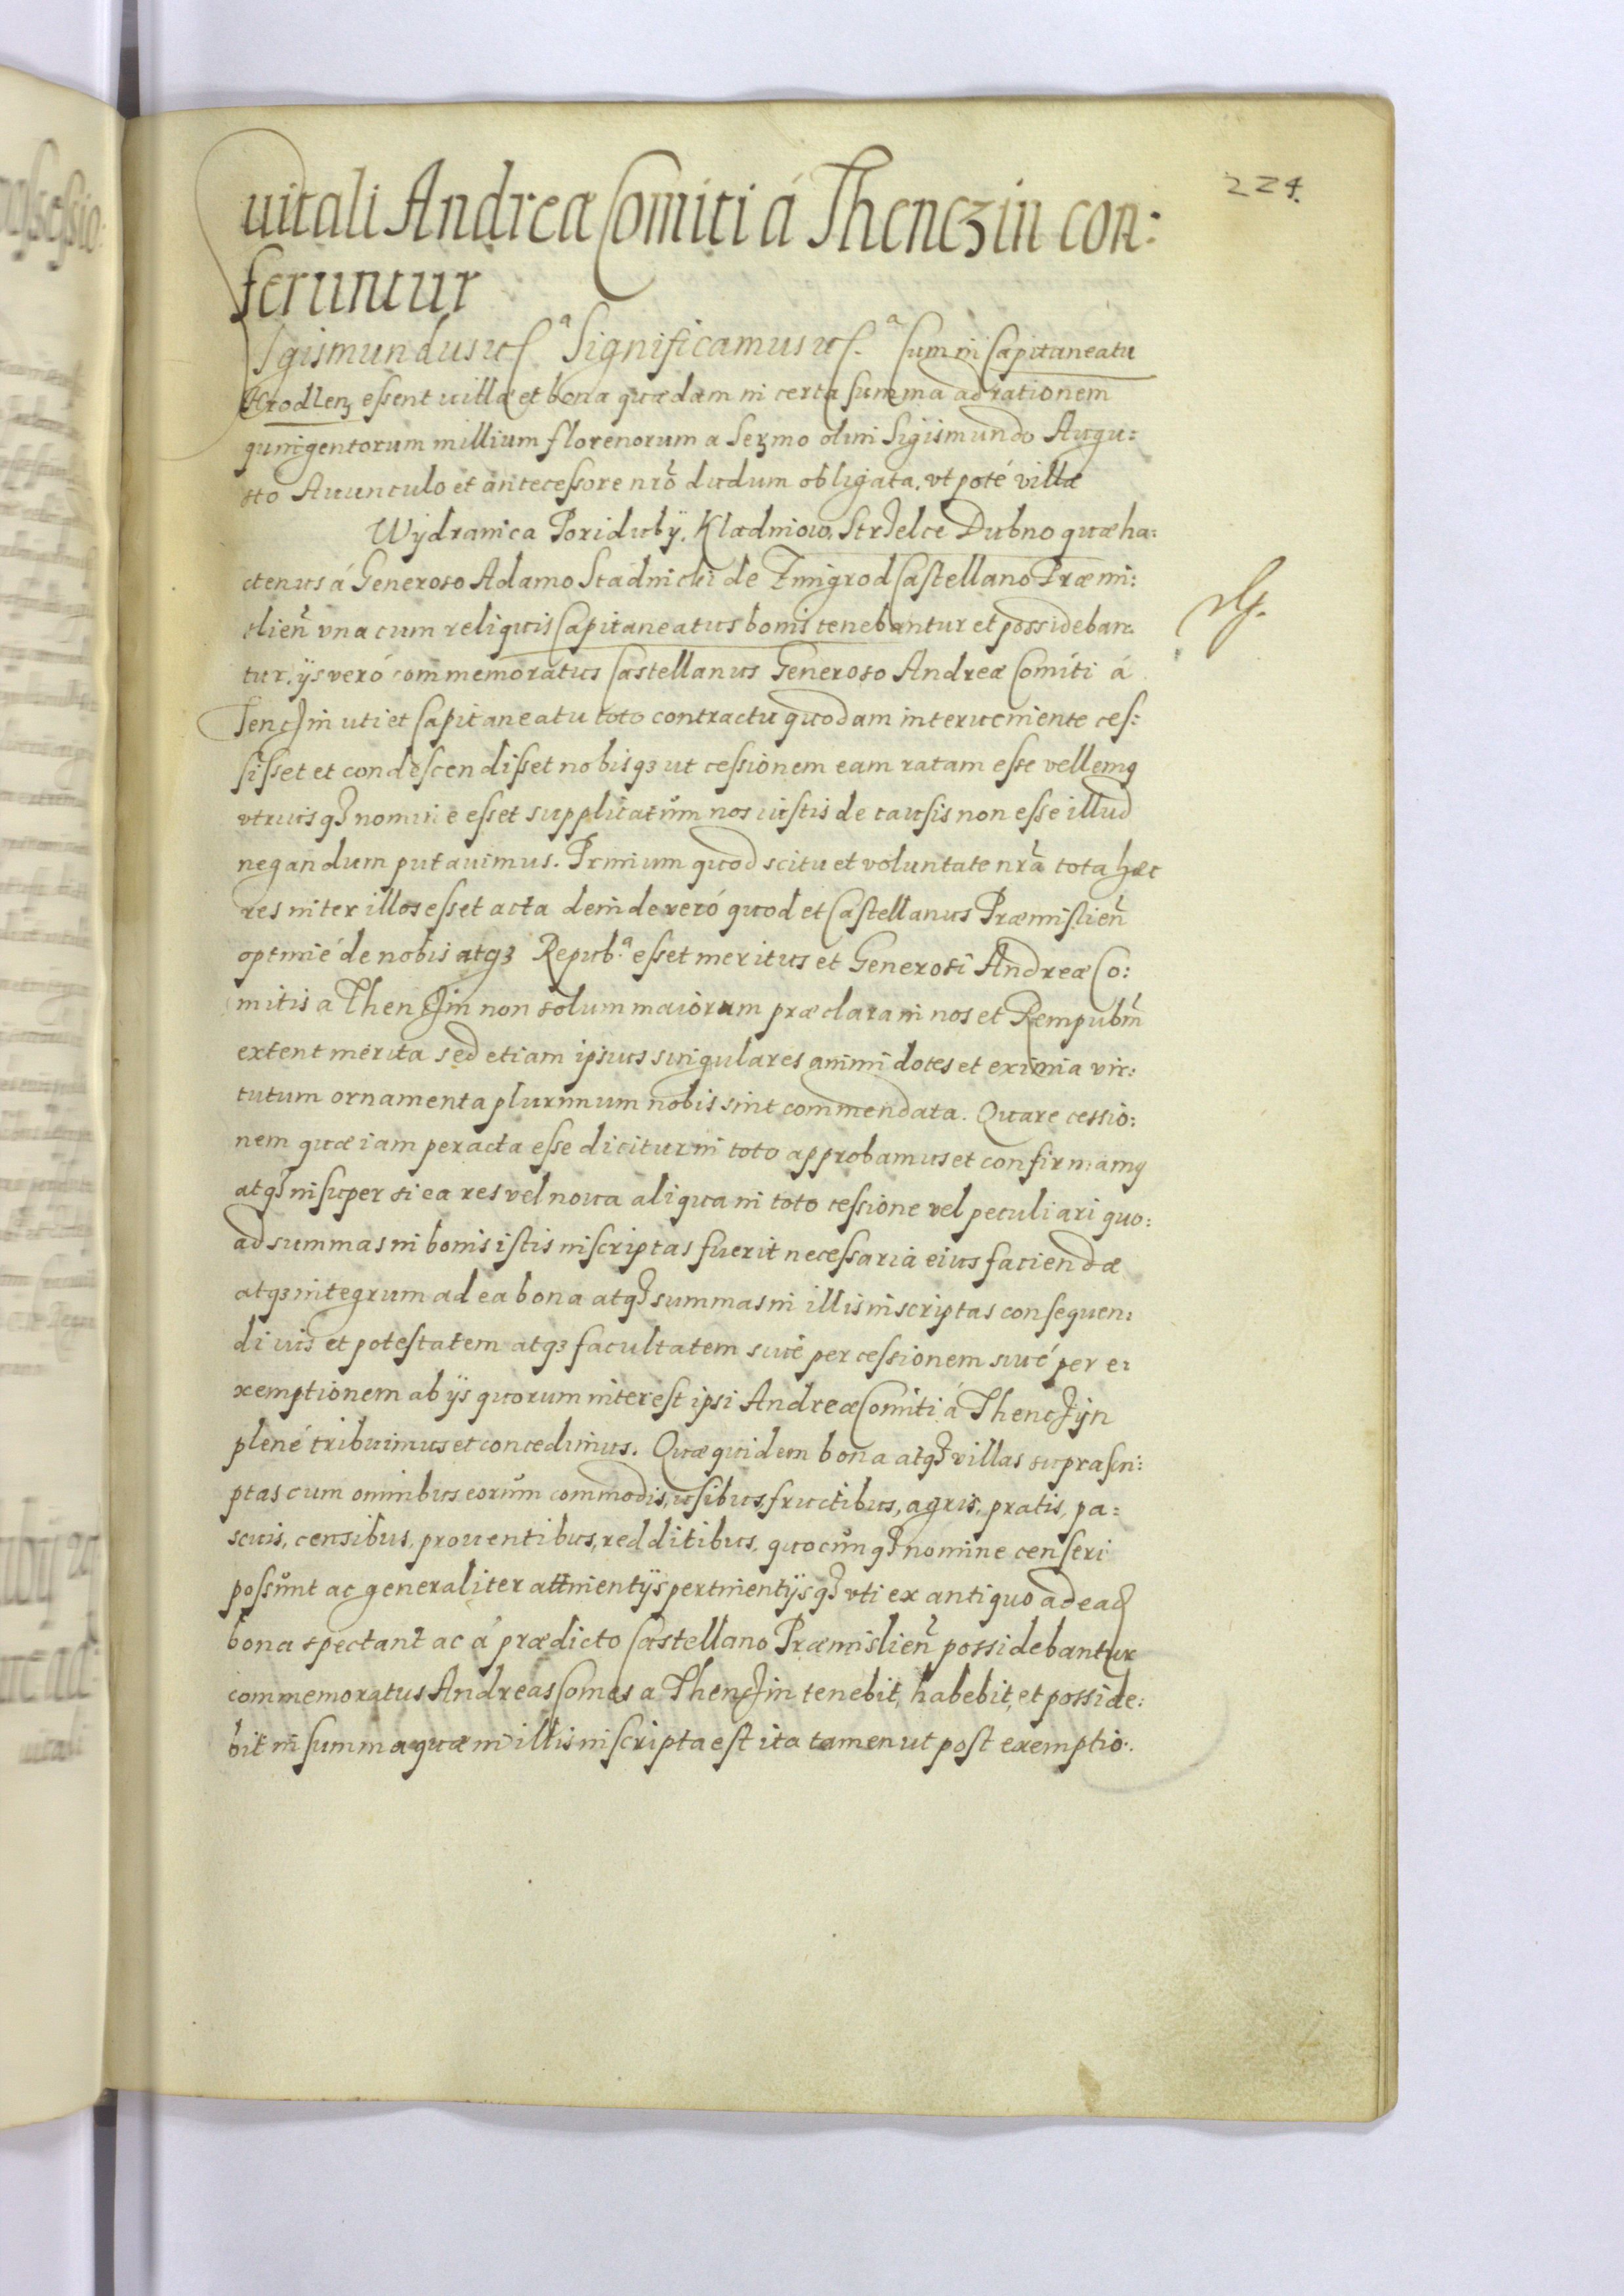 224.
uitali Andreæ Comiti á Thenczin con:
feruntur
Sigismundus ut sª Significamus ut s.ª Cum in Capitaneatu
Hrodlen̄ essent uillæ et bona quædam in certa summa ad rationem
quingentorum millium florenorum a Serm̃o olim Sigismundo Augu:
sto Auunculo et antecessore nrõ dudum obligata, vt poté villæ
Wÿdranica Poridubÿ, Kladniow, Strzelce Dubno quæ ha:
ctenus á Generoso Adamo Stadnicki de Zmigrod Castellano Præmi:
slień vna cum reliquis Capitaneatus bonis tenebantur et possideban:
tur, ijs veró commemoratus Castellanus Generoso Andreæ Comiti á
Tenczin uti et Capitaneatu toto contractu quodam interueniente ces:
sisset et condescendisset nobisq3 ut cessionem eam ratam esse vellem9
vtriusq3 nomine esset supplicatum nos iustis de causis non esse illud
negandum putauimus. Primum quod scitu et voluntate nrã tota hæc
res inter illos esset acta deinde veró quod et Castellanus Præmislień
optimé de nobis atq3 Repub.ª esset meritus et Generosi Andreæ Co:
mitis a Thenczin non solum maiorum præclara in nos et Rempubm̃
extent merita sed etiam ipsius singulares animi dotes et eximia vir:
tutum ornamenta plurimum nobis sint commendata. Quare cessio:
nem quæ iam peracta esse dicitur in toto approbamus et confirmam9
atq3 insuper si ea res vel noua aliqua in toto cessione vel peculiari quo:
ad summas in bonis istis inscriptas fuerit necessaria eius faciendæ
atq3 integrum ad ea bona atq3 summas in illis inscriptas consequen:
di ius et potestatem atq3 facultatem siué per cessionem siué per e:
xemptionem ab ijs quorum interest ipsi Andreæ Comiti á Thenczÿn
plené tribuimus et concedimus. Quæ quidem bona atq3 villas suprascri:
ptas cum omnibus eorum commodis, usibus, fructibus, agris, pratis, pa:
scuis, censibus, prouentibus, redditibus, quocunq3 nomine censeri
possunt ac generaliter attinentijs pertinentijsq3 vti ex antiquo ad ea
bona spectant ac á prædicto Castellano Præmislień possidebantur
commemoratus Andreas Comes a Thenczin tenebit, habebit, et posside:
bit in summa quæ in illis inscripta est ita tamen ut post exemptio: